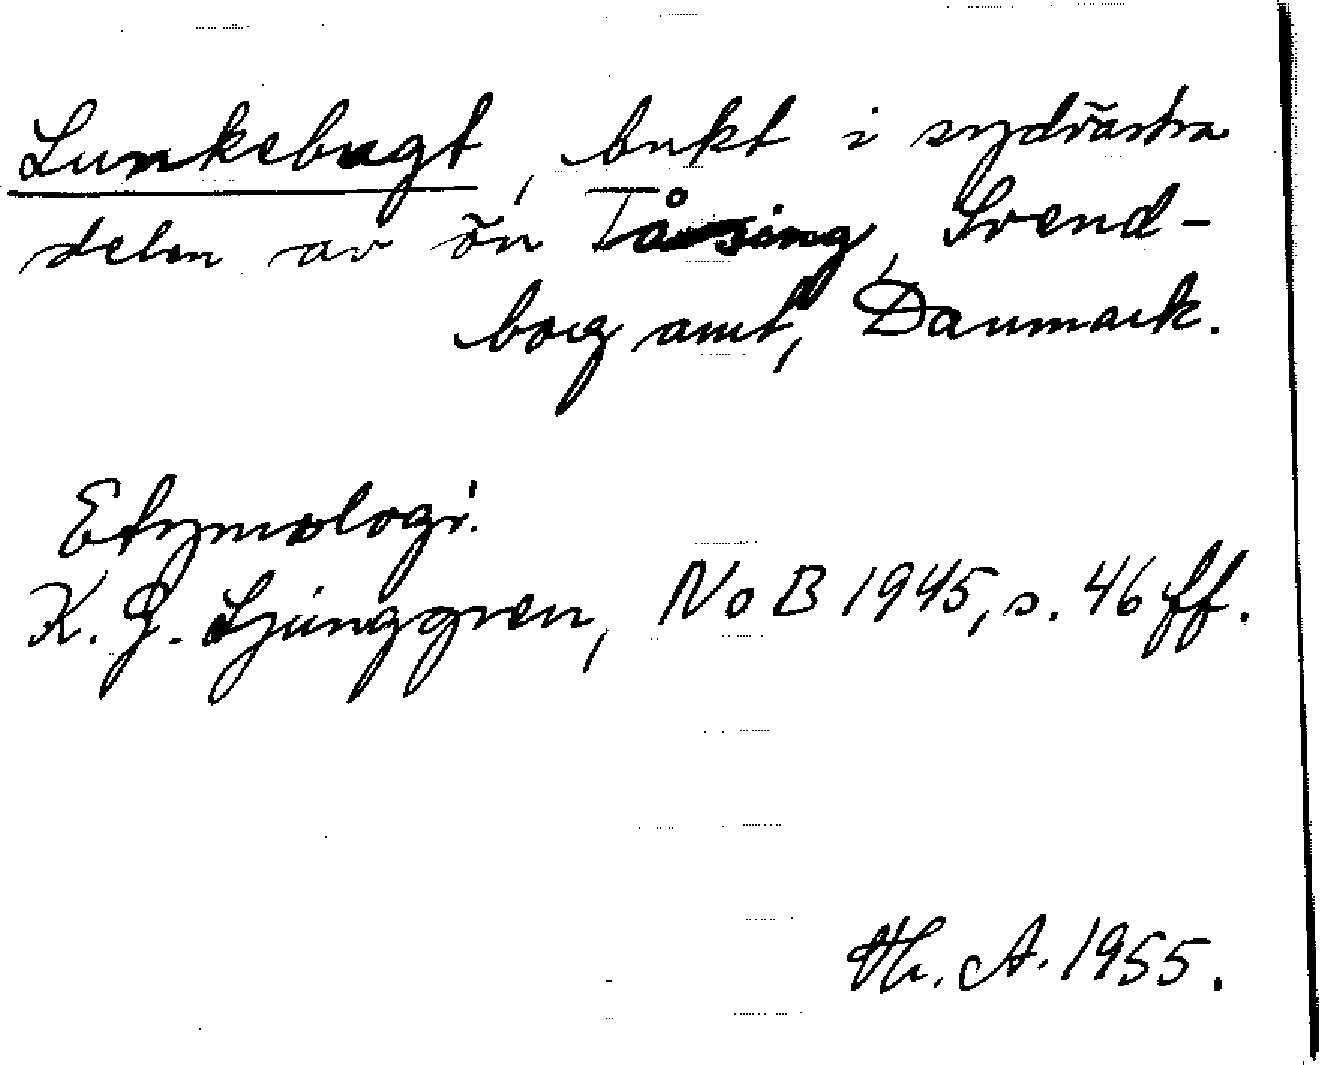 Lunkebugt, bukt i sydvästra
delen av ön Tåsing, Svend-
borg amt, Danmark.
Etymologi:
K. G. Ljunggren, NoB 1945, s. 46 ff.
Th. A. 1955.